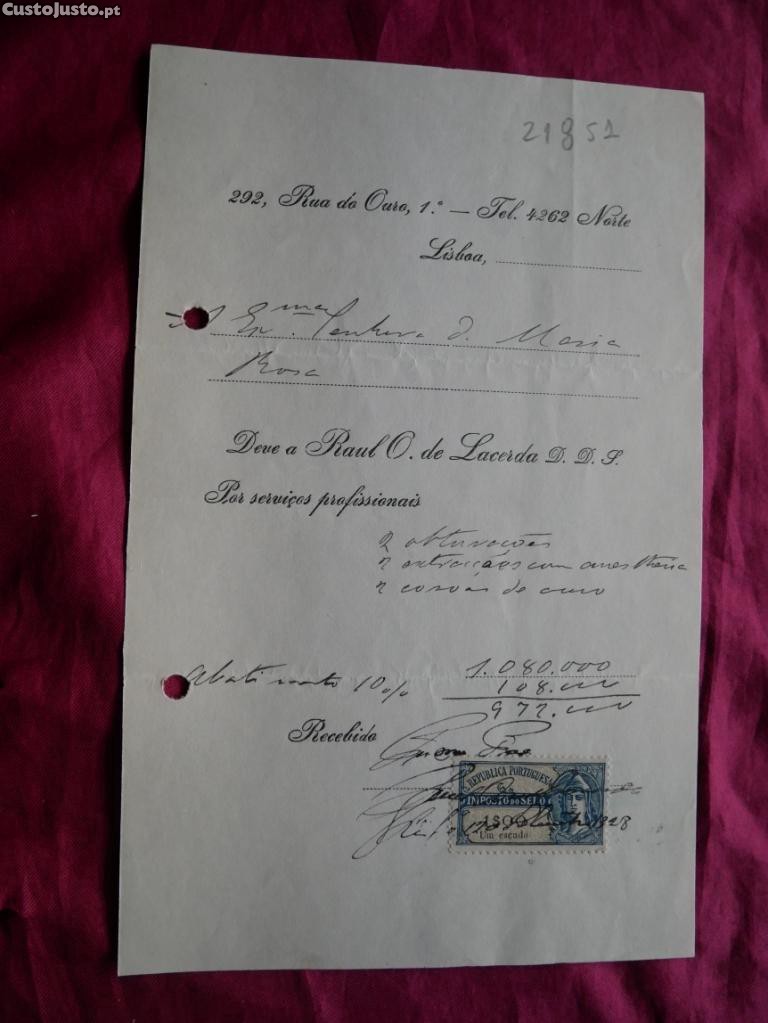 CustoJusto.pt
21851
292, Rua do Ouro, 1.º — Tel. 4262 Norte
Lisboa,
A Ex.ma Senhora D. Maria
Rosa
Deve a Raul O. de Lacerda D. D. S.
Por serviços profissionais
2 obturações
2 extracções com anesthesia
2 coroas de ouro
1.080.000
Abatimento 10% 108.000
972.000
Recebido
REPUBLICA PORTUGUESA
IMPOSTO DO SELO
1$00
Um escudo
1928